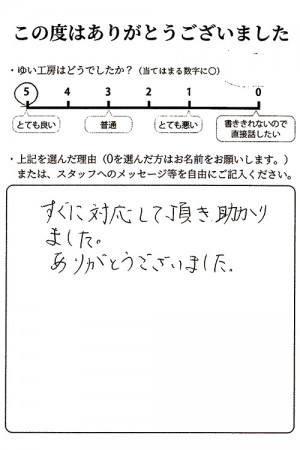 この度はありがとうございました
・ゆい工房はどうでしたか？（当てはまる数字に○）
5 4 3 2 1 0
とても良い 普通 とても悪い 書ききれないので直接話したい
・上記を選んだ理由（0を選んだ方はお名前をお願いします。）
または、スタッフへのメッセージ等を自由にご記入ください。
すぐに対応して頂き助かり
ました。
ありがとうございました。